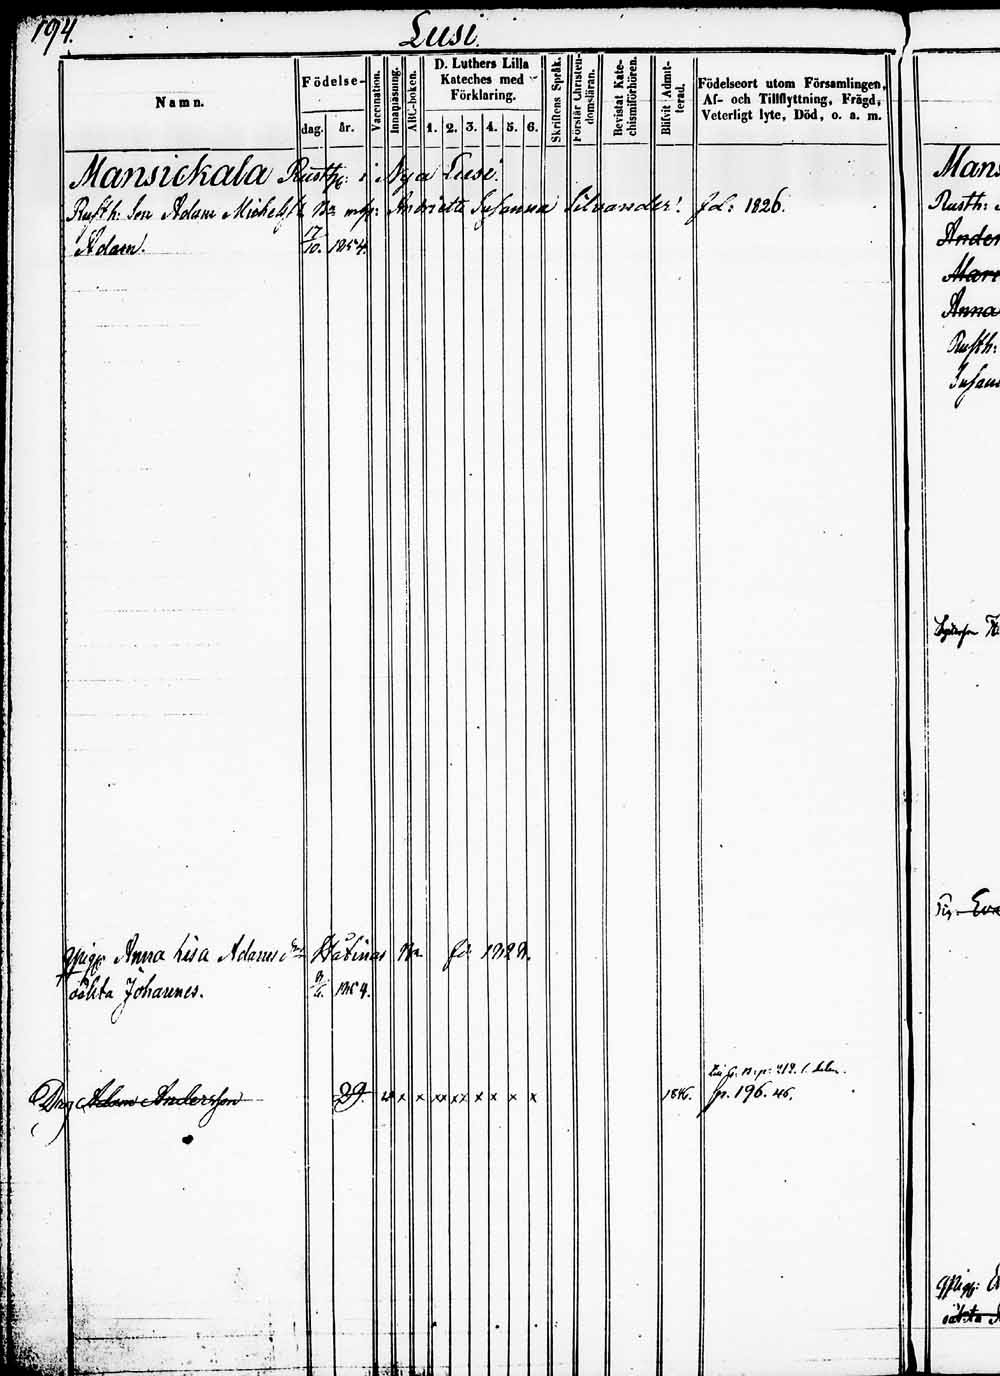 194.
Lusi.
Namn.
Födelse-
dag.
år.
Vaccination.
Innanläsning.
ABC-boken.
D. Luthers Lilla
Kateches med
Förklaring.
1. 2. 3. 4. 5. 6.
Skriftens Språk.
Förstår Christen-
domsläran.
Bevistat Kate-
chismiförhören.
Blifvit Admit-
terad.
Födelseort utom Församlingen,
Af- och Tillflyttning, Frägd,
Veterligt lyte, Död, o. a. m.
Mansickala i Nya Lusi.
Rusth: Son Adam Michelss: Andrietta Susanna Silvander. fd: 1826.
Adam. 17/10. 1854.
Anna Lisa Adams dr
oäkta Johannes. 1854.
Drg Adam Andersson 29. x x xx xx x x x x 1846. p. 196. 46.
Mans
Rusth:
Ander
Mari
Anna
Rusth:
Susan
Eva
oäkta